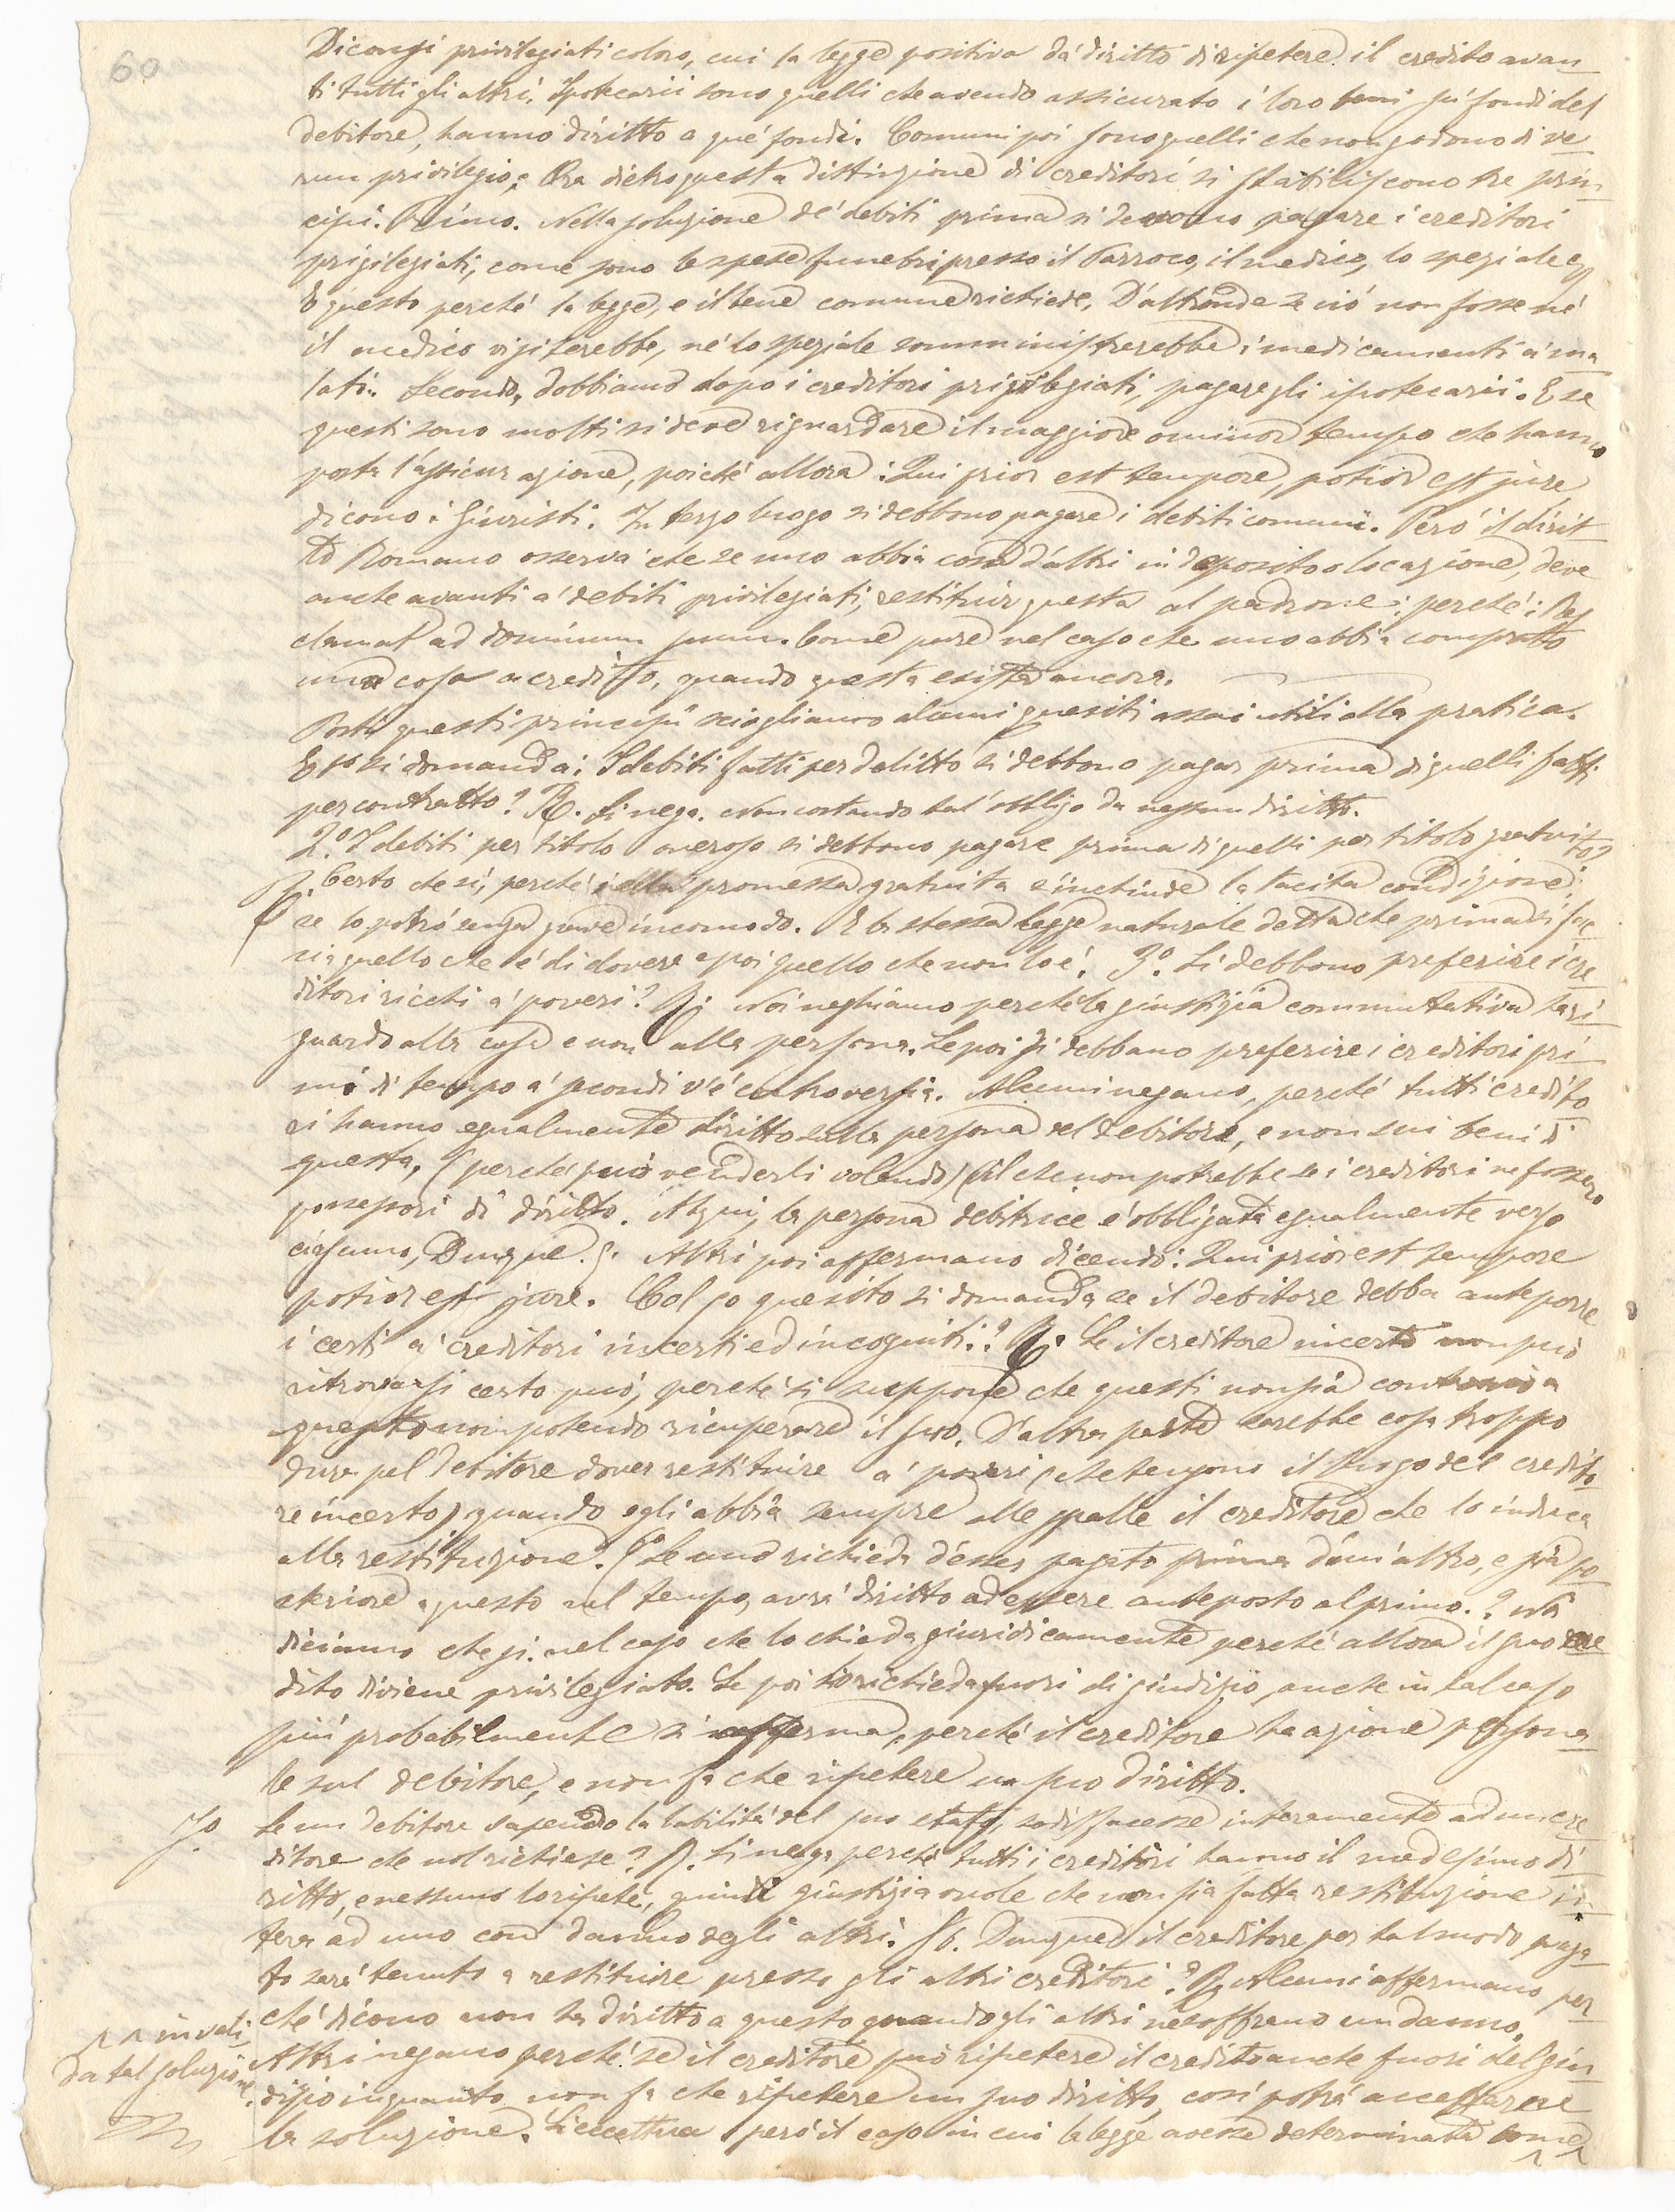 60
Diconsi privilegiati coloro, cui la legge positiva dá diritto di ripetere il credito avan
ti tutti gli altri. Ipotecarii sono quelli che avendo assicurato i loro beni su' fondi del
debitore, hanno diritto a qué fondi. Comuni poi sono quelli che non godono di ve
run privilegio. Ora dietro questa distinzione di creditori si stabiliscono tre prin
cipi. Primo. Nella soluzione dé debiti prima si devono pagare i creditori
privilegiati, come sono le spese funebri presso il Parroco, il medico, lo speziale
E questo perché la legge, e il bene comune richiede. D'altronde se ció non fosse né
il medico visiterebbe, né lo speziale somministrerebbe i medicamenti a' ma
lati. Secondo, dobbiamo dopo i creditori privilegiati, pagare gli ipotecarii. E se
questi sono molti si deve riguardare il maggiore o minor tempo che hanno
posta l'assicurazione, poiché allora: Qui prior est tempore, potior est jure
dicono i Giuristi. In terzo luogo si debbono pagare i debiti comuni. Peró il dirit
to Romano osserva che se uno abbia cosa d'altri in deposito o locazione, deve
anche avanti a' debiti privilegiati, restituir questa al padrone: perché: Res
clamat ad dominum suum. Come pure nel caso che uno abbia comprato
una cosa a credito, quando questa esista ancora.
Posti questi principii sciogliamo alcuni quesiti assai utili alla pratica.
E 1º si domanda: I debiti fatti per delitto si debbono pagar prima di quelli fatti
per contratto? R. Si nega. Non costando tal' obbligo da nessun diritto.
2.º I debiti per titolo oneroso si debbono pagare prima di quelli per titolo gratuito?
R. Certo che sí, perché nella promessa gratuita s'inchiude la tacita condizione:
se lo potró senza grave incomodo. E la stessa legge naturale detta che prima si fac
cia quello che é di dovere e poi quello che non lo é. 3º. Si debbono preferire i cre
ditori ricchi a' poveri? R. Noi neghiamo perché la giustizia commutativa ha ri
guardo alla cosa e non alla persona. Se poi si debbano preferire i creditori pri
mi di tempo a' secondi v'é controversia. Alcuni negano, perché tutti i credito
ri hanno egualmente diritto sulla persona del debitore, e non sui beni di
questa, (perché puó venderli volendo) (il che non potrebbe se i creditori ne fossero
possessori di diritto. Atqui, la persona debitrice é obbligata egualmente verso
ciascuno, Dunque. Altri poi affermano dicendo: Qui prior est tempore
potior est jure. Col 5o quesito si domanda se il debitore debba anteporre
i certi a' creditori incerti ed incogniti? R. Se il creditore incerto non puó
ritrovarsi certo puó, perché si suppone che questi non sia
questo non potendo ricuperare il suo. D'altra parte sarebbe cosa troppo
dura pel debitore dover restituire a' poveri (che tengono il luogo del credito
re incerto) quando egli abbia sempre alle spalle il creditore che lo induca
alla restituzione. 6º Se uno richieda d'esser pagato prima d'un' altro, e sia po
steriore a questo nel tempo, avrá diritto ad essere anteposto al primo? Noi
diciamo che sí. nel caso che lo chieda giuridicamente perché allora il suo cre
dito diviene privilegiato. Se poi lo richieda fuori di giudizio, anche in tal caso
piú probabilmente si afferma, perché il creditore ha azione persona
le sul debitore, e non fa che ripetere un suo diritto.
7º Se un debitore sapendo la labilitá del suo stato, sodisfacesse interamente ad un cre
ditore che nol richiese? R. Si nega perché tutti i creditori hanno il medesimo di
ritto, e nessuno lo ripete, quindi giustizia vuole che non sia fatta restituzione in
tera ad uno con danno degli altri. Dunque il creditore per tal modo paga
to sará tenuto a restituire presso gli altri creditori? R. Alcuni affermano per
ché dicono non ha diritto a questo quando gli altri ne soffrano un danno.
Altri negano perché se il creditore puó ripetere il credito anche fuori del giu
dizio inquanto non fa che ripetere un suo diritto, cosí potrá accettarne
la soluzione. Si eccettua peró il caso in cui la legge avesse determinata come
^^ invali
da tal soluzione.